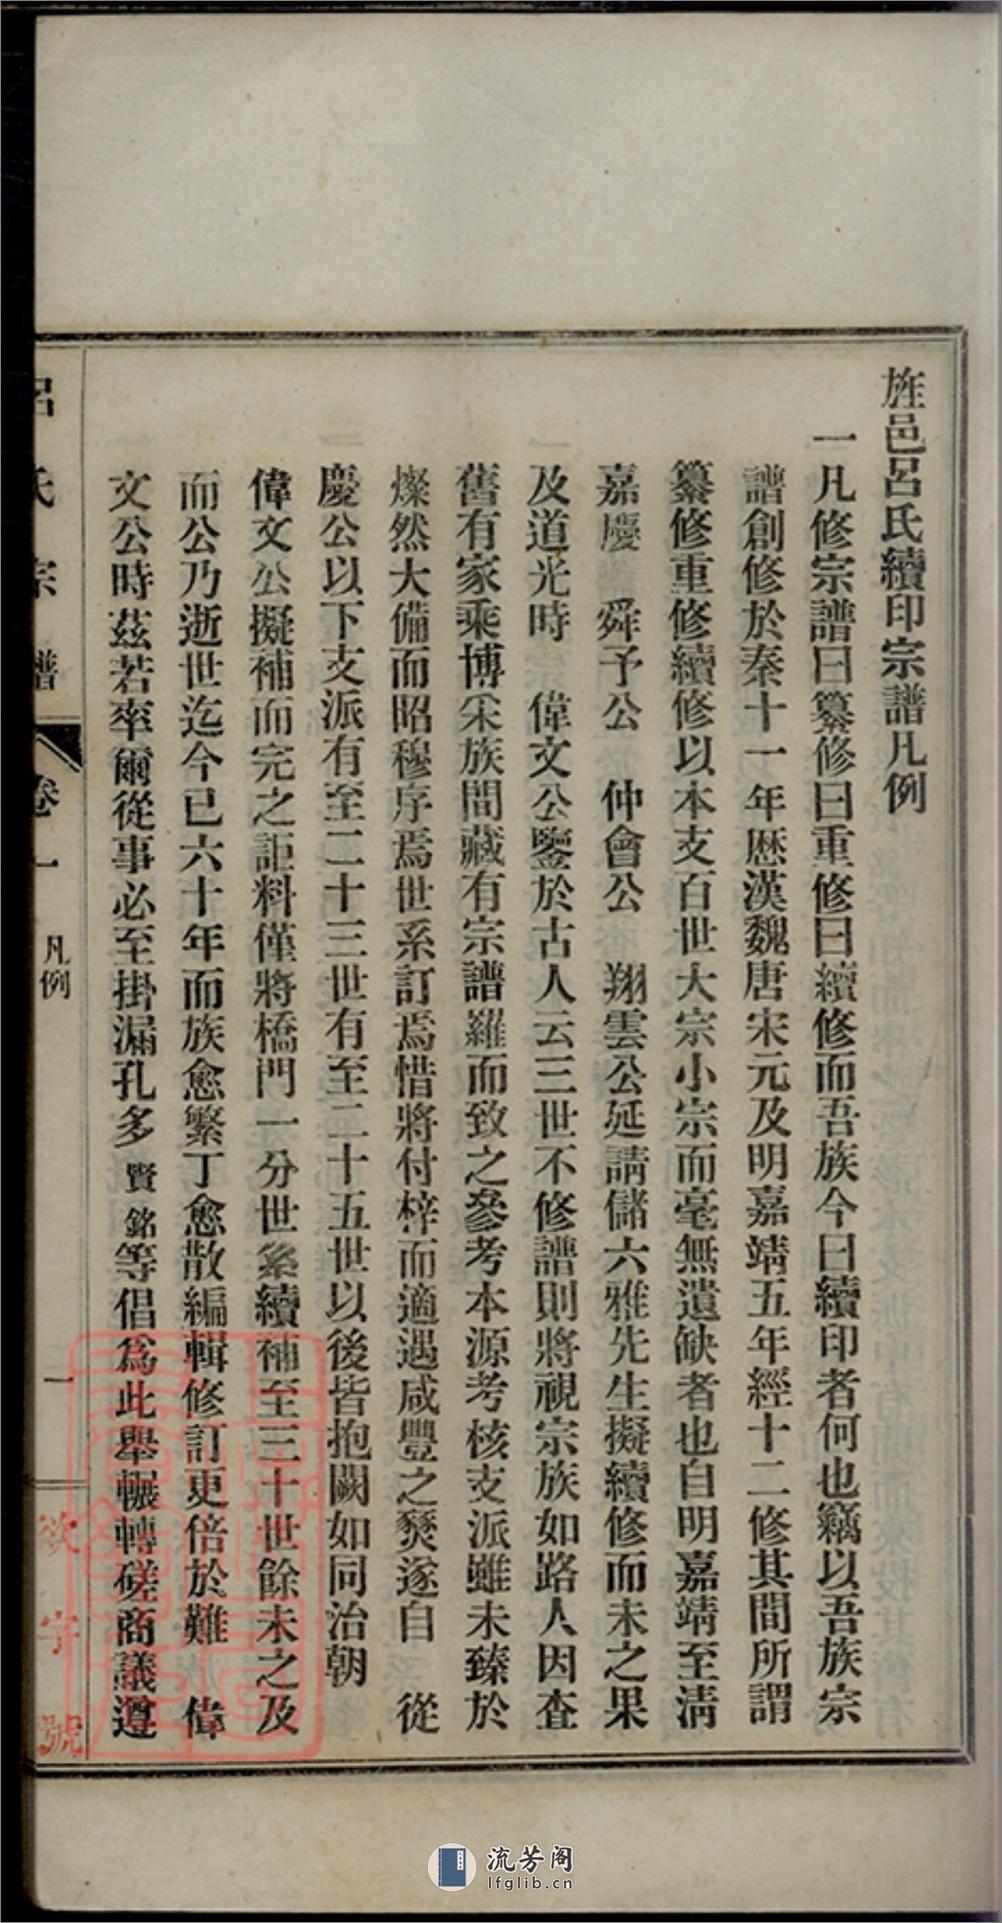 旌邑呂氏續印宗譜凡例
一凡修宗譜曰纂修曰重修曰續修而吾族今曰續印者何也竊以吾族宗
譜創修於秦十一年歷漢魏唐宋元及明嘉靖五年經十二修其間所謂
纂修重修續修以本支百世大宗小宗而毫無遺缺者也自明嘉靖至淸
嘉慶 舜予公 仲會公 翔雲公延請儲六雅先生擬續修而未之果
及道光時 偉文公鑒於古人云三世不修譜則將視宗族如路人因查
舊有家乘博采族間藏有宗譜羅而致之參考本源考核支派雖未臻於
燦然大備而昭穆序焉世系訂焉惜將付梓而適遇咸豐之燹遂自 從
慶公以下支派有至二十三世有至二十五世以後皆抱闕如同治朝
偉文公擬補而完之詎料僅將橋門一分世系續補至三十世餘未之及
而公乃逝世迄今已六十年而族愈繁丁愈散編輯修訂更倍於難 偉
文公時茲若率爾從事必至掛漏孔多賢銘等倡爲此舉輾轉磋商議遵
呂氏宗譜 卷一 凡例 一
字號
流芳阁
lfglib.cn